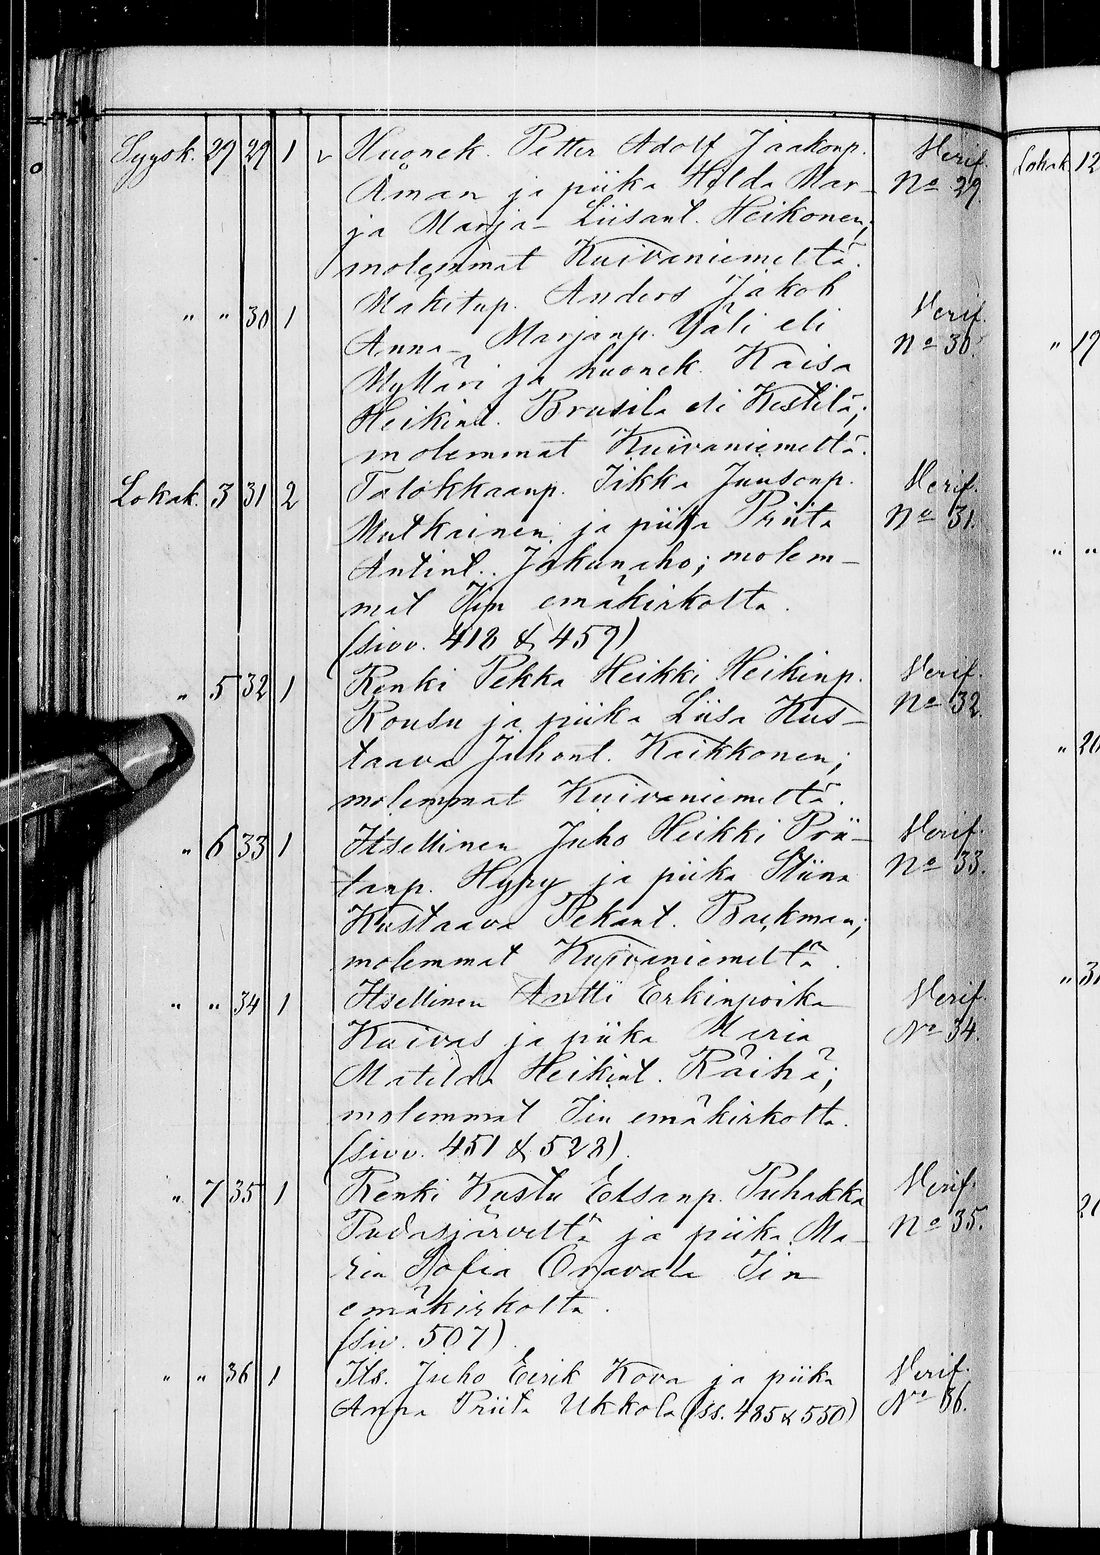 Syysk. 29 29 1 v Huonek. Petter Adolf Jaakonp. Verif.
Åman ja piika Hilda Mar- No 29.
ja Marja-Liisant. Heikonen;
molemmat Kuivaniemeltä.
" " 30 1 Mäkitup. Anders Jakob Verif.
Anna-Marjanp. Yäli eli No 30.
Mylläri ja huonek. Kaisa
Heikint. Brusila eli Kestilä;
molemmat Kuivaniemeltä.
Lokak. 3 31 2 Talokkaanp. Iikka Juusonp. Verif.
Mutkainen ja piika Priita No 31.
Antint. Jakunaho; molem-
mat Iin emäkirkolta.
(sivv. 418 & 459)
" 5 32 1 Renki Pekka Heikki Heikinp. Verif.
Rousu ja piika Liisa Kus- No 32
taava Juhont. Kaikkonen;
molemmat Kuivaniemeltä.
" 6 33 1 Itsellinen Juho Heikki Prii- Verif.
tanp. Hyry ja piika Stiina No 33.
Kustaava Pekant. Backman;
molemmat Kuivaniemeltä.
" " 34 1 Itsellinen Antti Erkinpoika Verif.
Kuivas ja piika Maria No 34.
Matilda Heikint. Räihä;
molemmat Iin emäkirkolta.
(sivv. 451 & 528).
" 7 35 1 Renki Kustu Elsanp. Puhakka Verif.
Pudasjärveltä ja piika Ma- No 35.
ria Sofia Oravala Iin
emäkirkolta.
(siv. 507)
" " 36 1 Its. Juho Eerik Kova ja piika Verif.
Anna Priita Ukkola (ss. 485 & 550) No 36.
Lokak. 12
" 19
" "